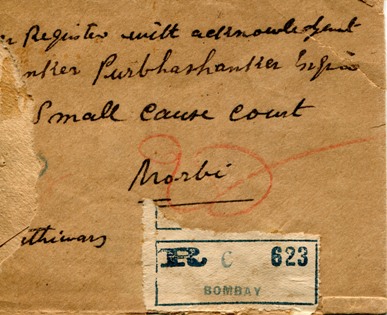 Register with acknowledgment
nker Purbhashanker
Small cause court
Morbi
thiwar
R C 623
BOMBAY